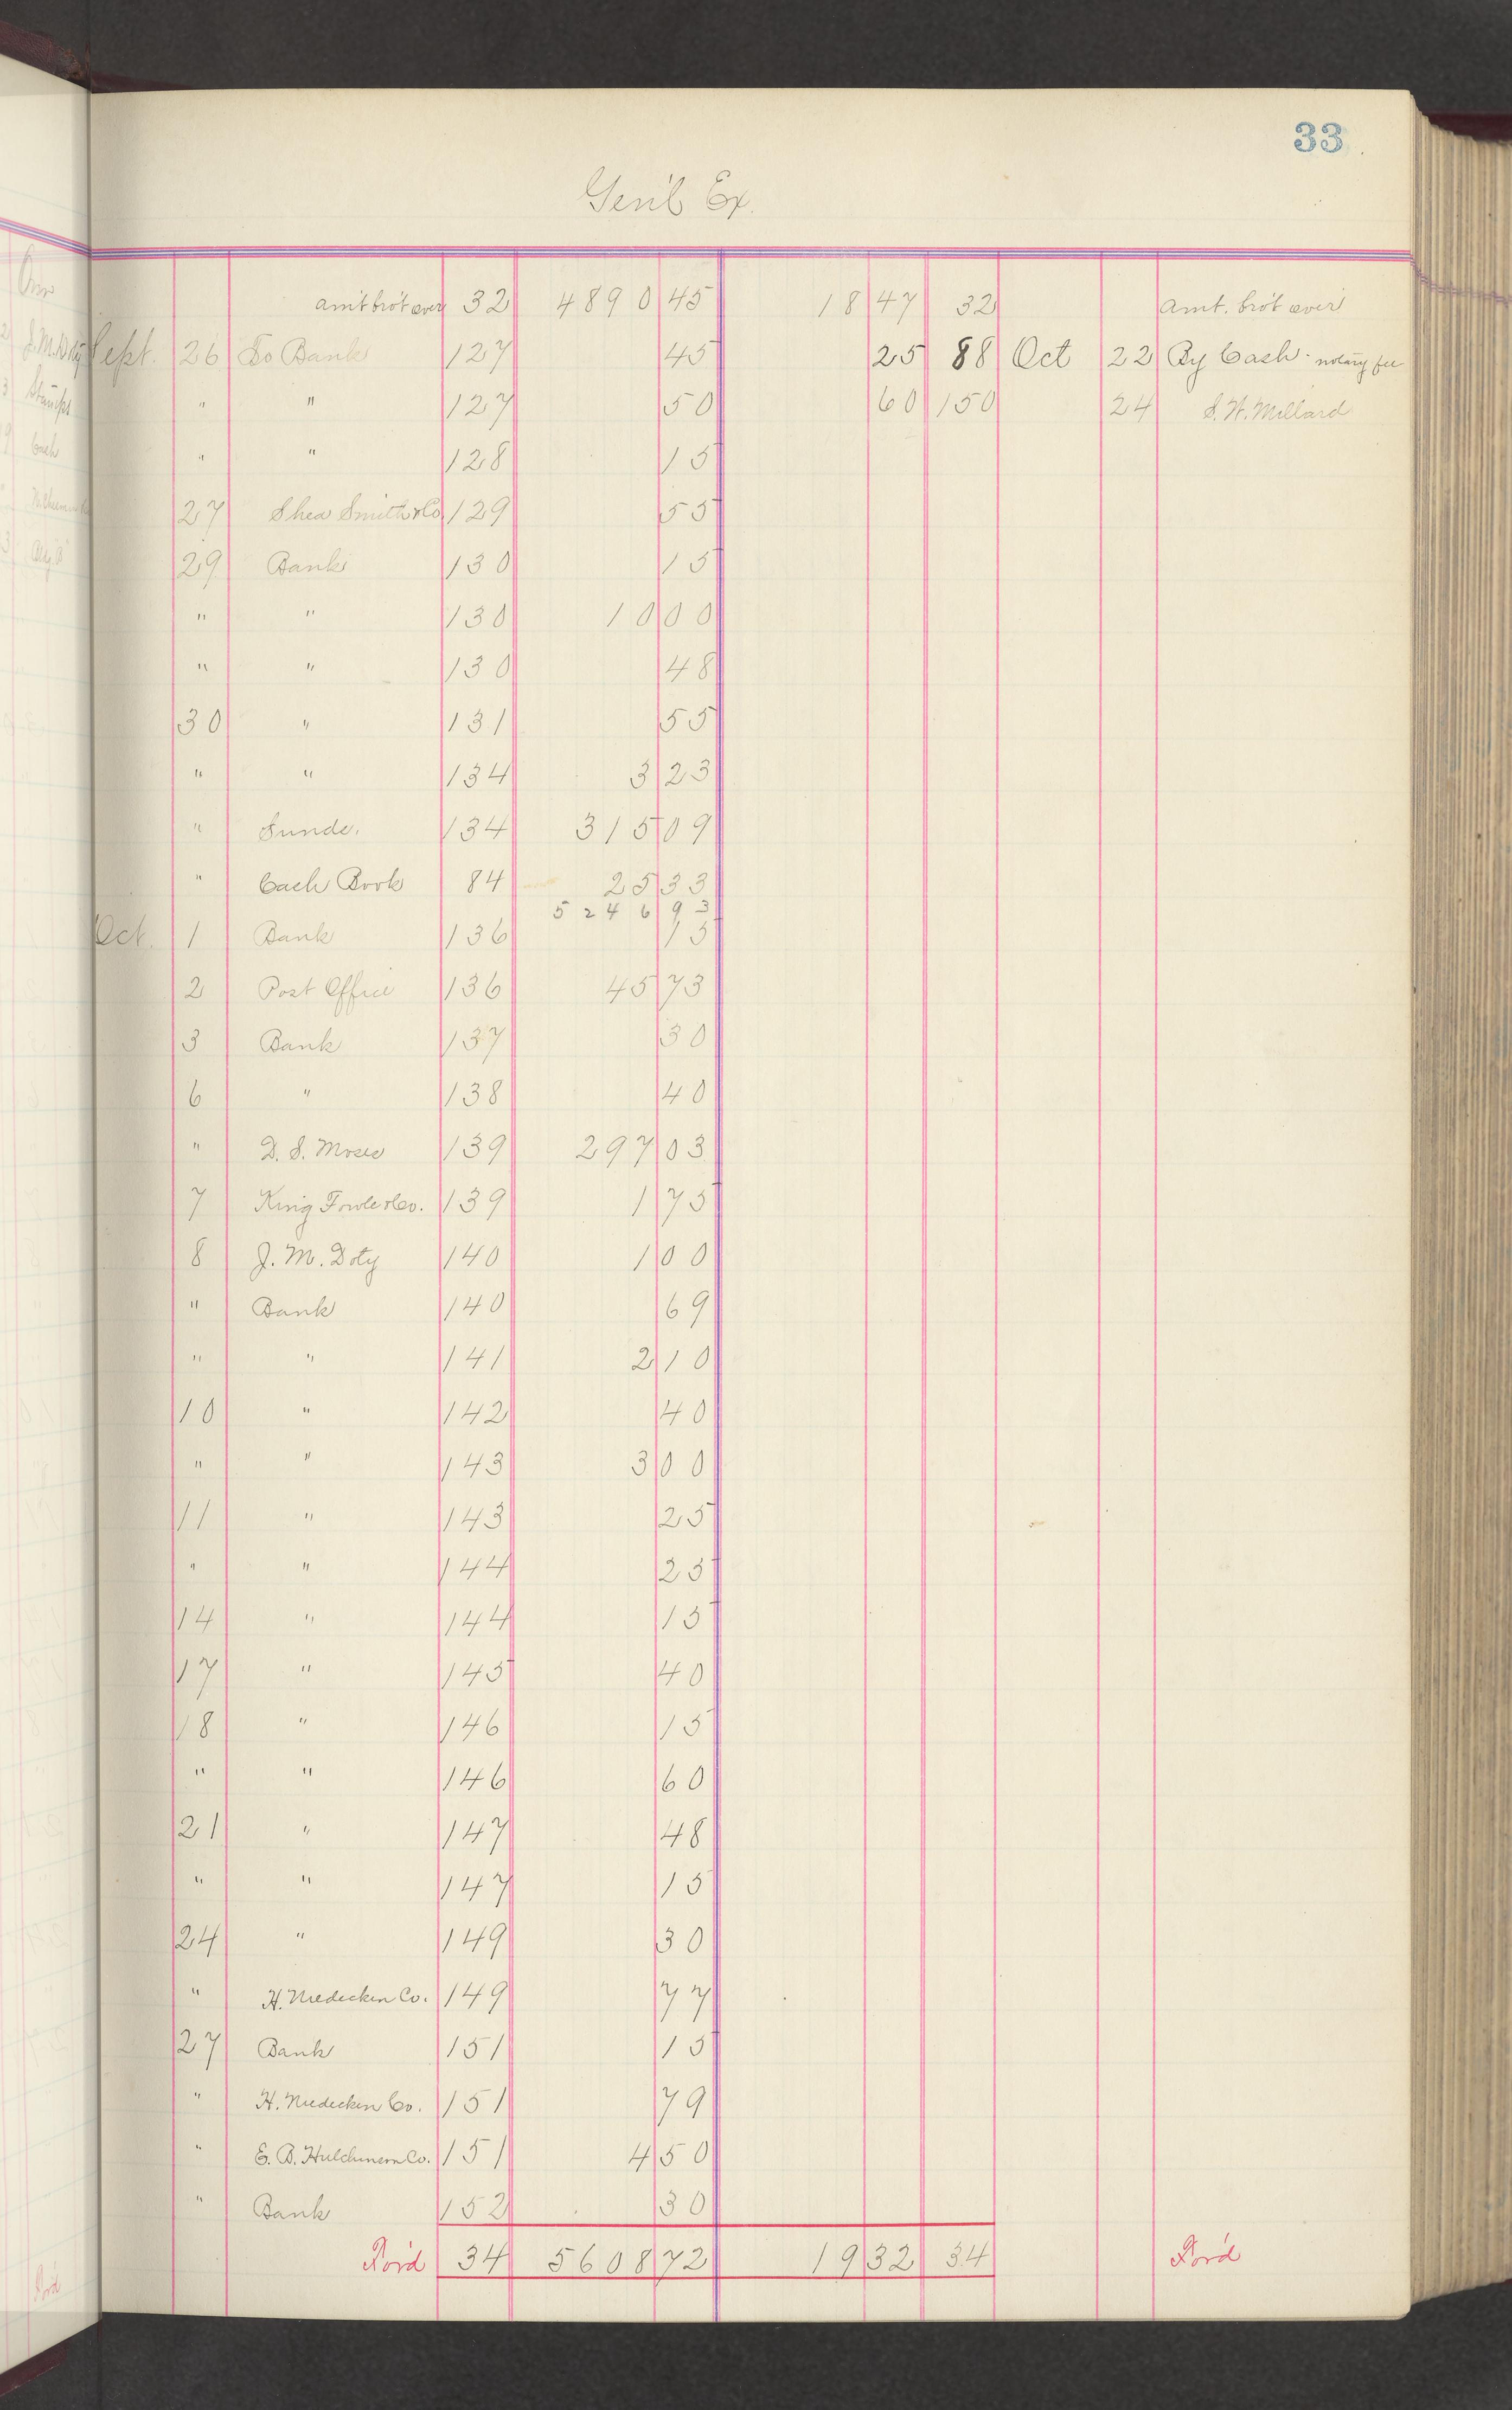 33
Gen'l Ex.
am't bro't over 32 4890 45 18 47 32 Amt. bro't over
Sept. 26 To Bank 127 45 25 88 Oct 22 By Cash - notary fee
" " 127 50 60 150 24 S. H. Millard
" " 128 15
27 Shea Smith & Co 129 55
29 Bank 130 15
" " 130 10 00
" " 130 48
30 " 131 55
" " 134 3 23
" Sunds. 134 315 09
" Cash Book 84 25 33
5246 93
Oct. 1 Bank 136 15
2 Post Office 136 45 73
3 Bank 137 30
6 " 138 40
" D. S. Moses 139 297 03
7 King Fowle & Co. 139 1 75
8 J. M. Doty 140 1 00
" Bank 140 69
" " 141 2 10
10 " 142 40
" " 143 3 00
11 " 143 25
" " 144 25
14 " 144 15
17 " 145 40
18 " 146 15
" " 146 60
21 " 147 48
" " 147 15
24 " 149 30
" H. Niedecken Co. 149 77
27 Bank 151 15
" H. Niedecken Co. 151 79
" E. B. 151 4 50
" Bank 152 30
For'd 34 5608 72 19 32 34 For'd